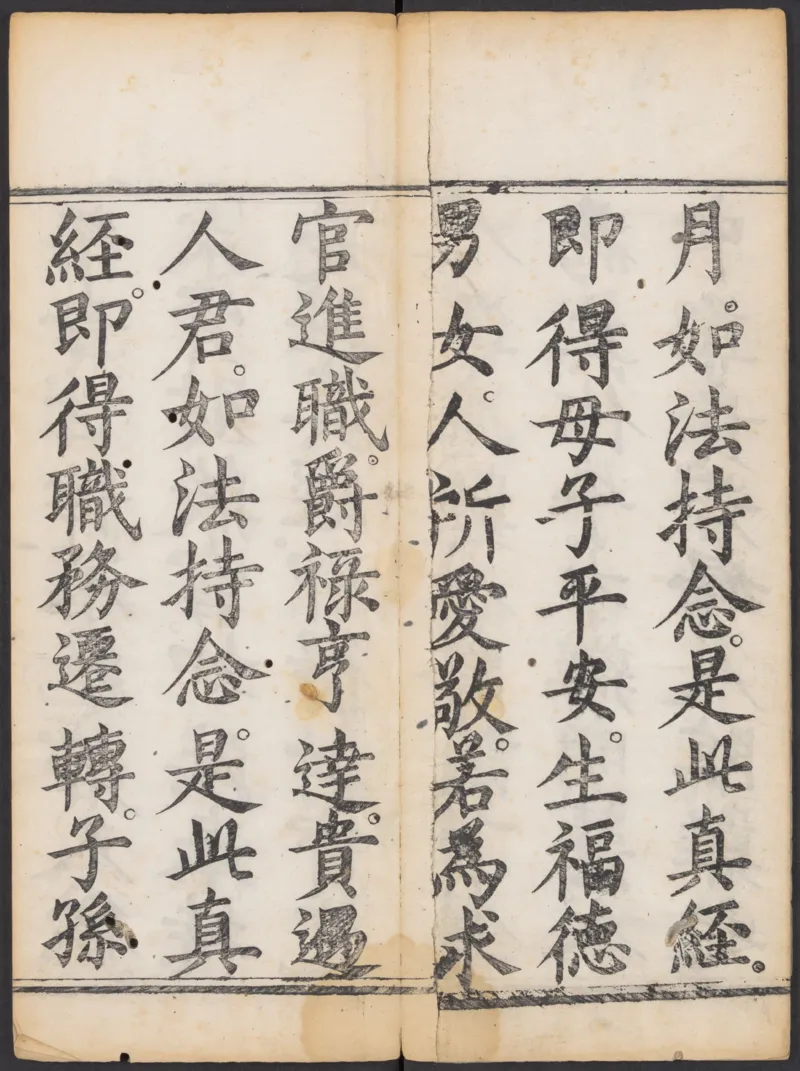 月。如法持念。是此真經。
即得母子平安。生福德
男女。人所愛敬。若為求
官進職。爵禄亨達。貴遇
人君。如法持念。是此真
經。即得職務遷轉。子孫